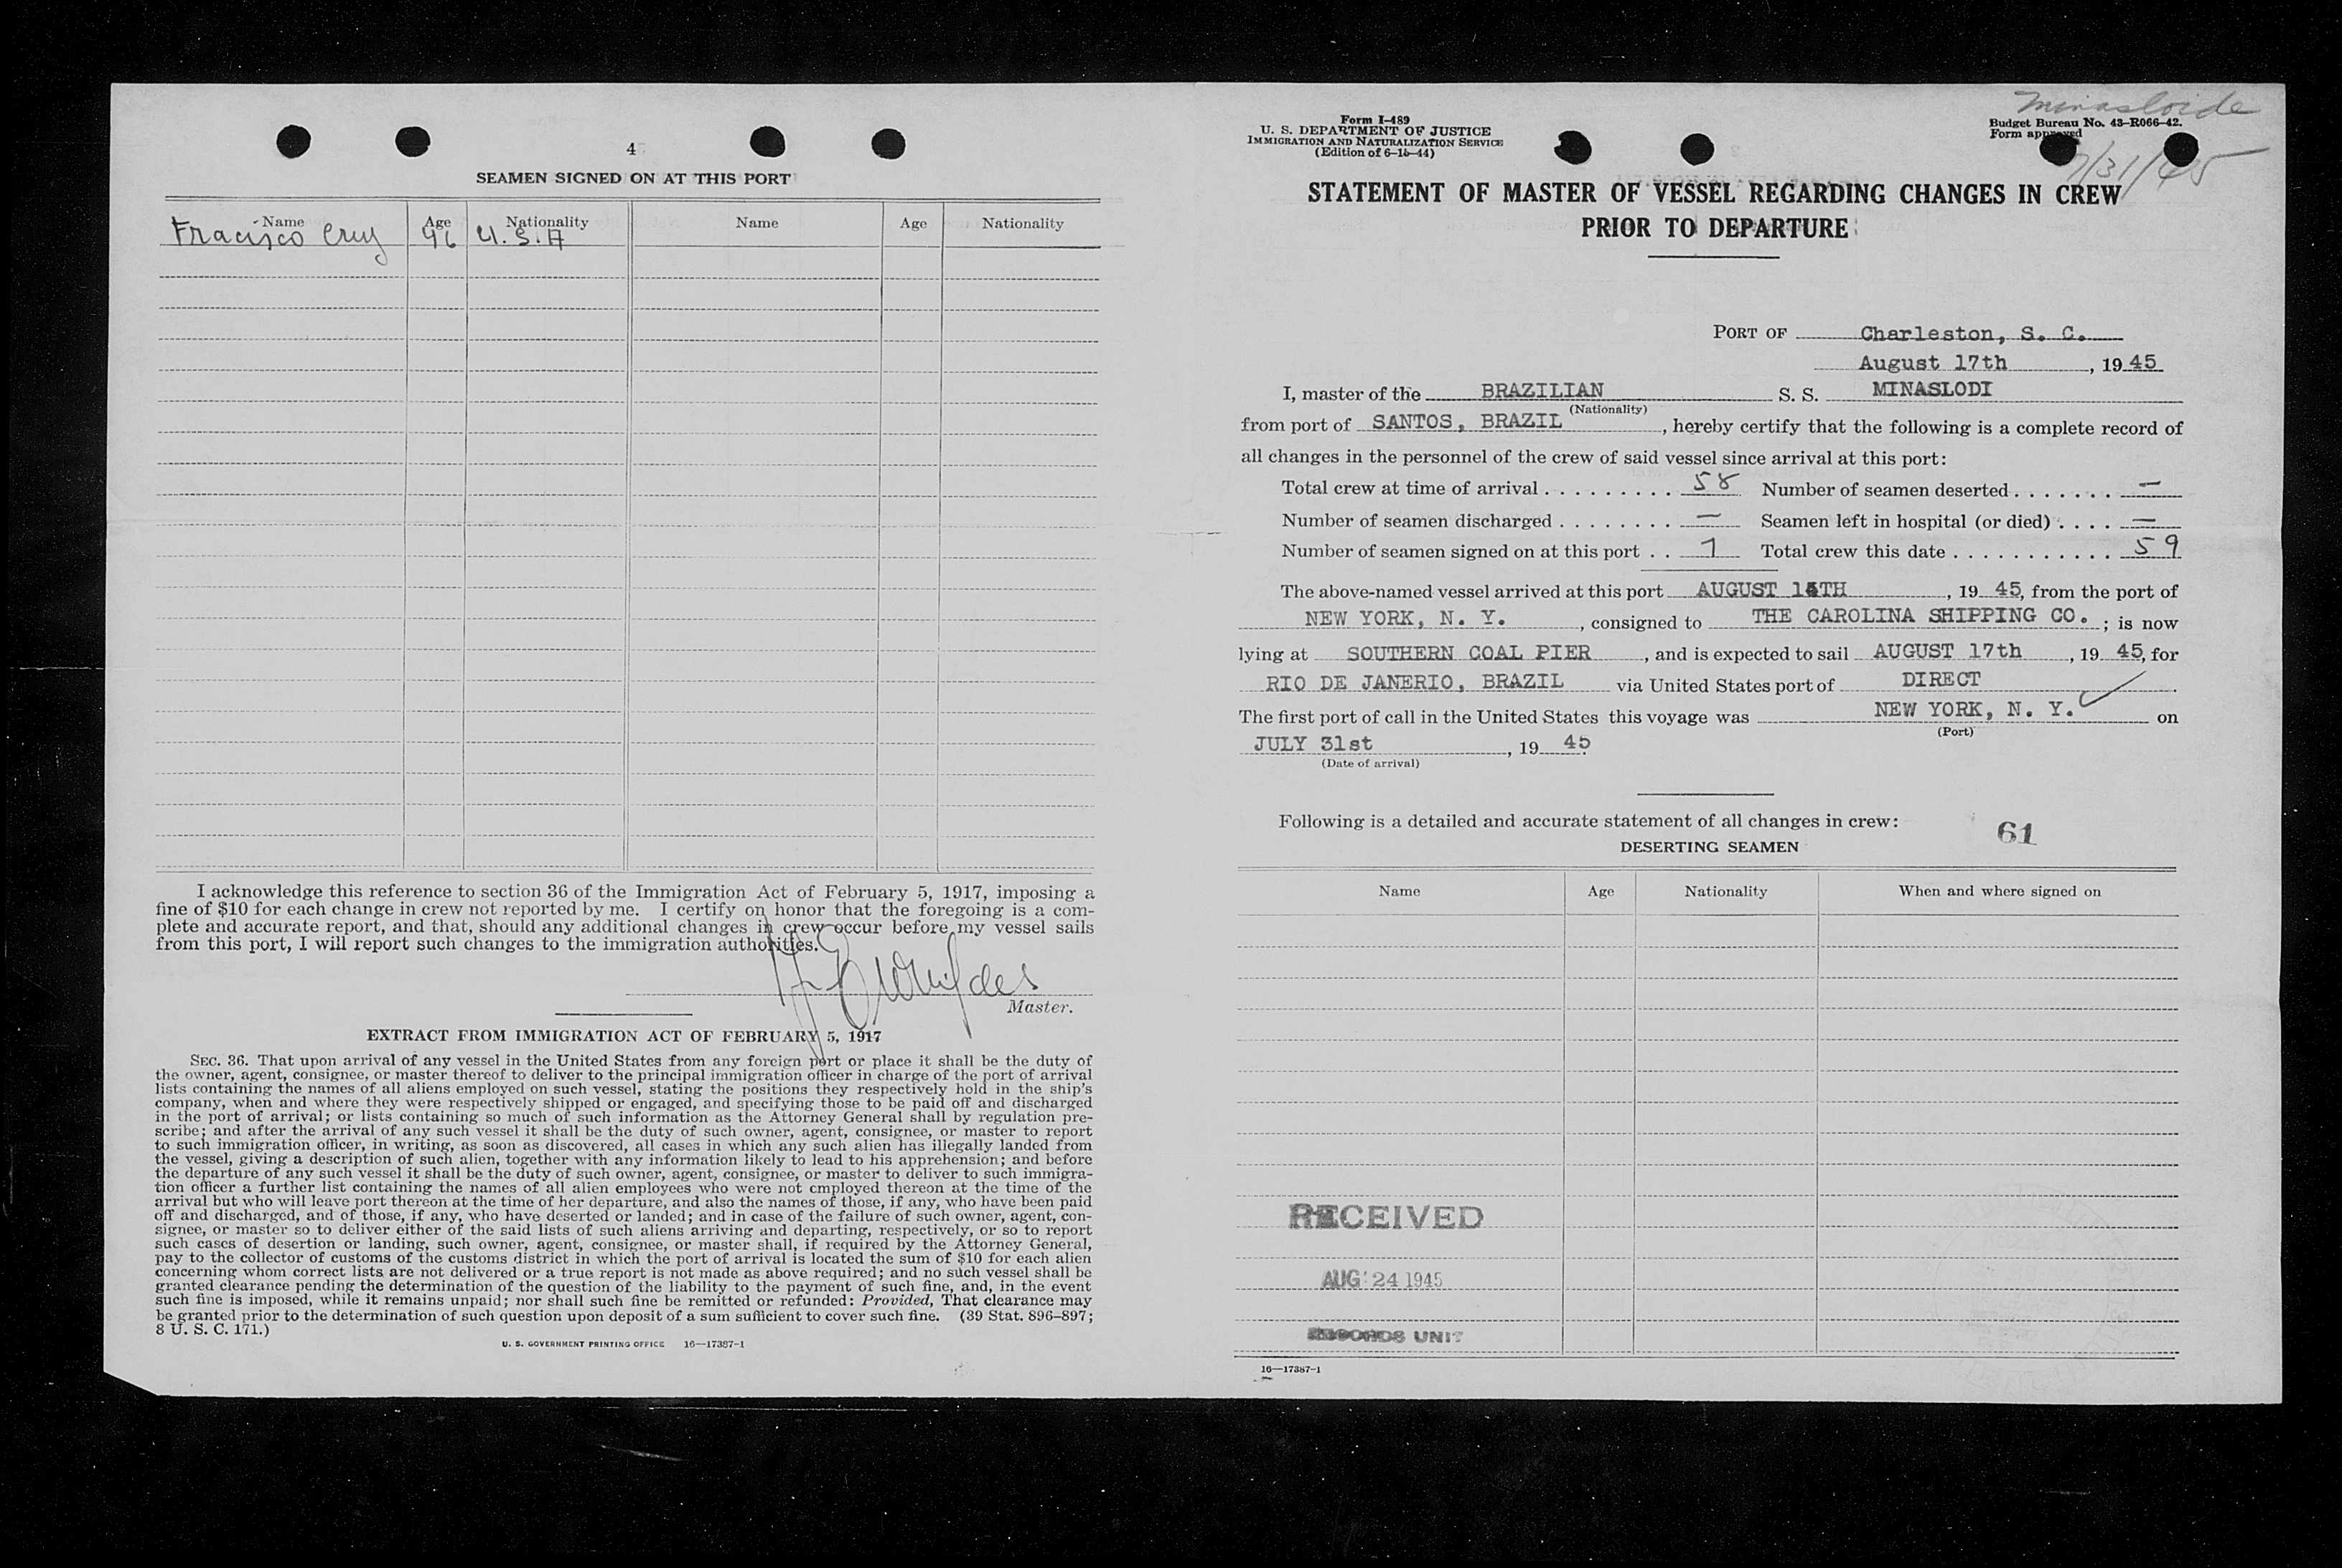 4
SEAMEN SIGNED ON AT THIS PORT
Name Age Nationality Name Age Nationality
Fracisco Cruz 46 U.S.A
I acknowledge this reference to section 36 of the Immigration Act of February 5, 1917, imposing a
fine of $10 for each change in crew not reported by me. I certify on honor that the foregoing is a com-
plete and accurate report, and that, should any additional changes in crew occur before my vessel sails
from this port, I will report such changes to the immigration authorities.
Master.
EXTRACT FROM IMMIGRATION ACT OF FEBRUARY 5, 1917
SEC. 36. That upon arrival of any vessel in the United States from any foreign port or place it shall be the duty of
the owner, agent, consignee, or master thereof to deliver to the principal immigration officer in charge of the port of arrival
lists containing the names of all aliens employed on such vessel, stating the positions they respectively hold in the ship's
company, when and where they were respectively shipped or engaged, and specifying those to be paid off and discharged
in the port of arrival; or lists containing so much of such information as the Attorney General shall by regulation pre-
scribe; and after the arrival of any such vessel it shall be the duty of such owner, agent, consignee, or master to report
to such immigration officer, in writing, as soon as discovered, all cases in which any such alien has illegally landed from
the vessel, giving a description of such alien, together with any information likely to lead to his apprehension; and before
the departure of any such vessel it shall be the duty of such owner, agent, consignee, or master to deliver to such immigra-
tion officer a further list containing the names of all alien employees who were not employed thereon at the time of the
arrival but who will leave port thereon at the time of her departure, and also the names of those, if any, who have been paid
off and discharged, and of those, if any, who have deserted or landed; and in case of the failure of such owner, agent, con-
signee, or master so to deliver either of the said lists of such aliens arriving and departing, respectively, or so to report
such cases of desertion or landing, such owner, agent, consignee, or master shall, if required by the Attorney General,
pay to the collector of customs of the customs district in which the port of arrival is located the sum of $10 for each alien
concerning whom correct lists are not delivered or a true report is not made as above required; and no such vessel shall be
granted clearance pending the determination of the question of the liability to the payment of such fine, and, in the event
such fine is imposed, while it remains unpaid; nor shall such fine be remitted or refunded: Provided, That clearance may
be granted prior to the determination of such question upon deposit of a sum sufficient to cover such fine. (39 Stat. 896–897;
8 U. S. C. 171.)
U. S. GOVERNMENT PRINTING OFFICE 16—17387-1
Minasloide
7/31/45
Form I-489
U. S. DEPARTMENT OF JUSTICE
IMMIGRATION AND NATURALIZATION SERVICE
(Edition of 6-15-44)
Budget Bureau No. 43-R066-42.
Form approved
STATEMENT OF MASTER OF VESSEL REGARDING CHANGES IN CREW
PRIOR TO DEPARTURE
PORT OF Charleston, S. C.
August 17th, 1945
I, master of the BRAZILIAN S. S. MINASLODI
(Nationality)
from port of SANTOS, BRAZIL, hereby certify that the following is a complete record of
all changes in the personnel of the crew of said vessel since arrival at this port:
Total crew at time of arrival . . . . . . . . . 58 Number of seamen deserted . . . . . . . —
Number of seamen discharged . . . . . . . . — Seamen left in hospital (or died) . . . . —
Number of seamen signed on at this port . . 1 Total crew this date . . . . . . . . . . . 59
The above-named vessel arrived at this port AUGUST 15TH, 1945, from the port of
NEW YORK, N. Y., consigned to THE CAROLINA SHIPPING CO.; is now
lying at SOUTHERN COAL PIER, and is expected to sail AUGUST 17th, 1945, for
RIO DE JANERIO, BRAZIL via United States port of DIRECT.
The first port of call in the United States this voyage was NEW YORK, N. Y. on
(Port)
JULY 31st, 1945
(Date of arrival)
Following is a detailed and accurate statement of all changes in crew:
61
DESERTING SEAMEN
Name Age Nationality When and where signed on
RECEIVED
AUG 24 1945
RECORDS UNIT
16—17387-1